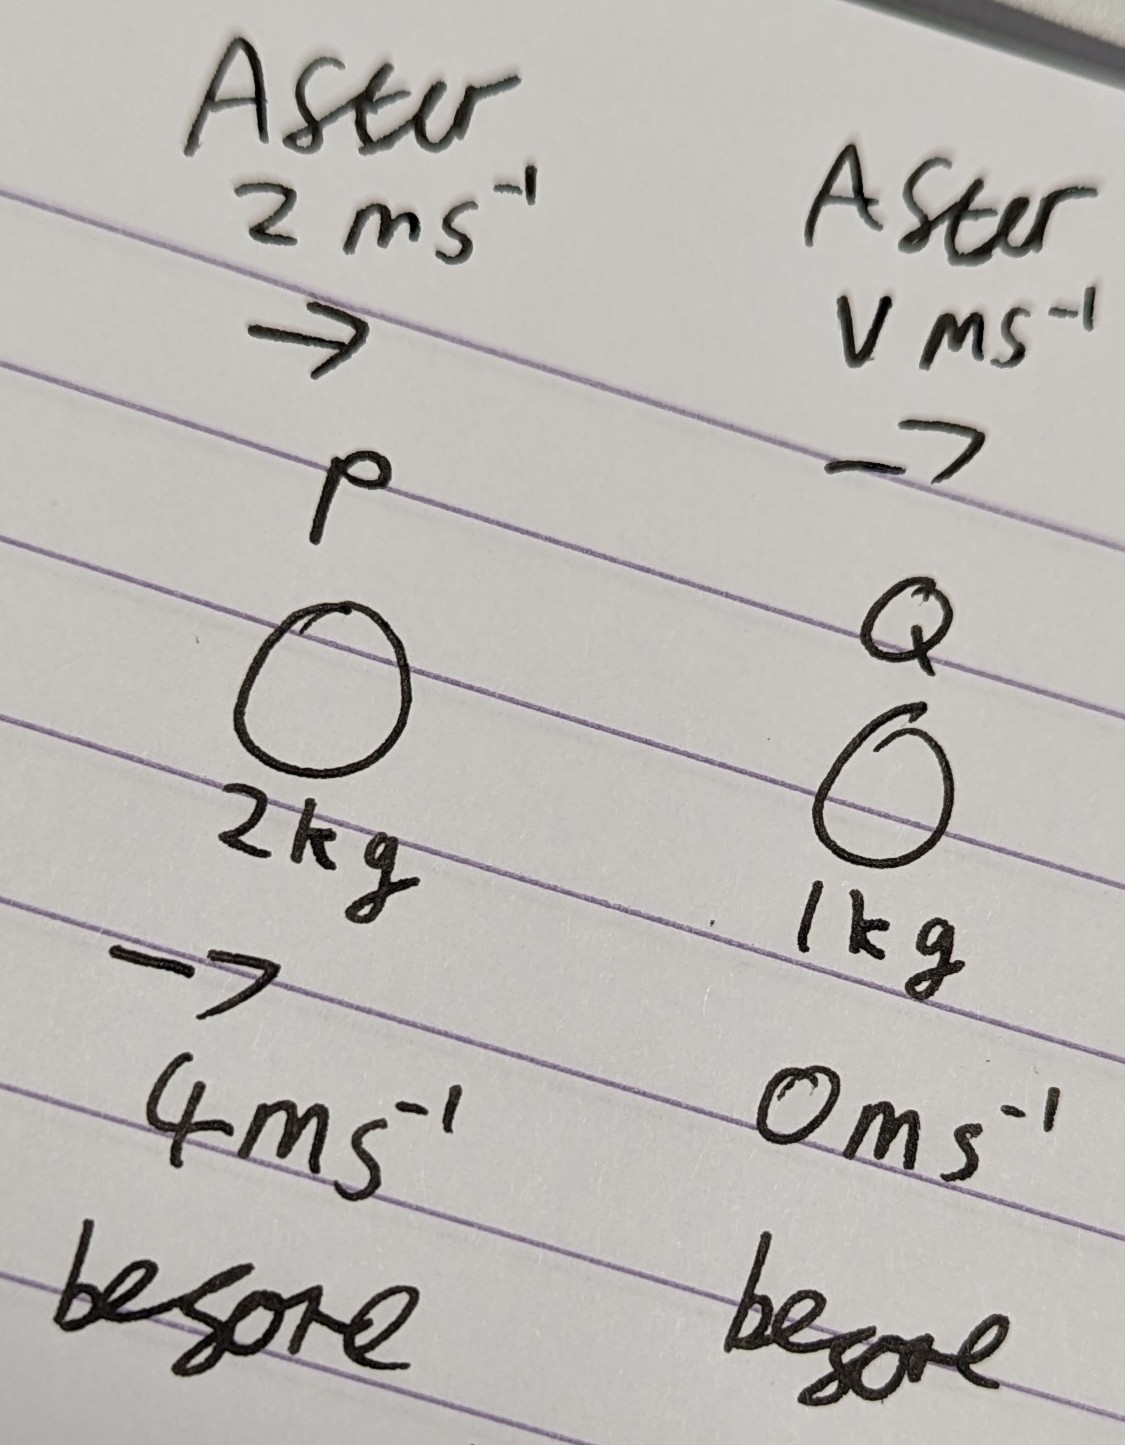 After
2 ms⁻¹
→
P
2kg
→
4ms⁻¹
before
After
V ms⁻¹
→
Q
1kg
0ms⁻¹
before